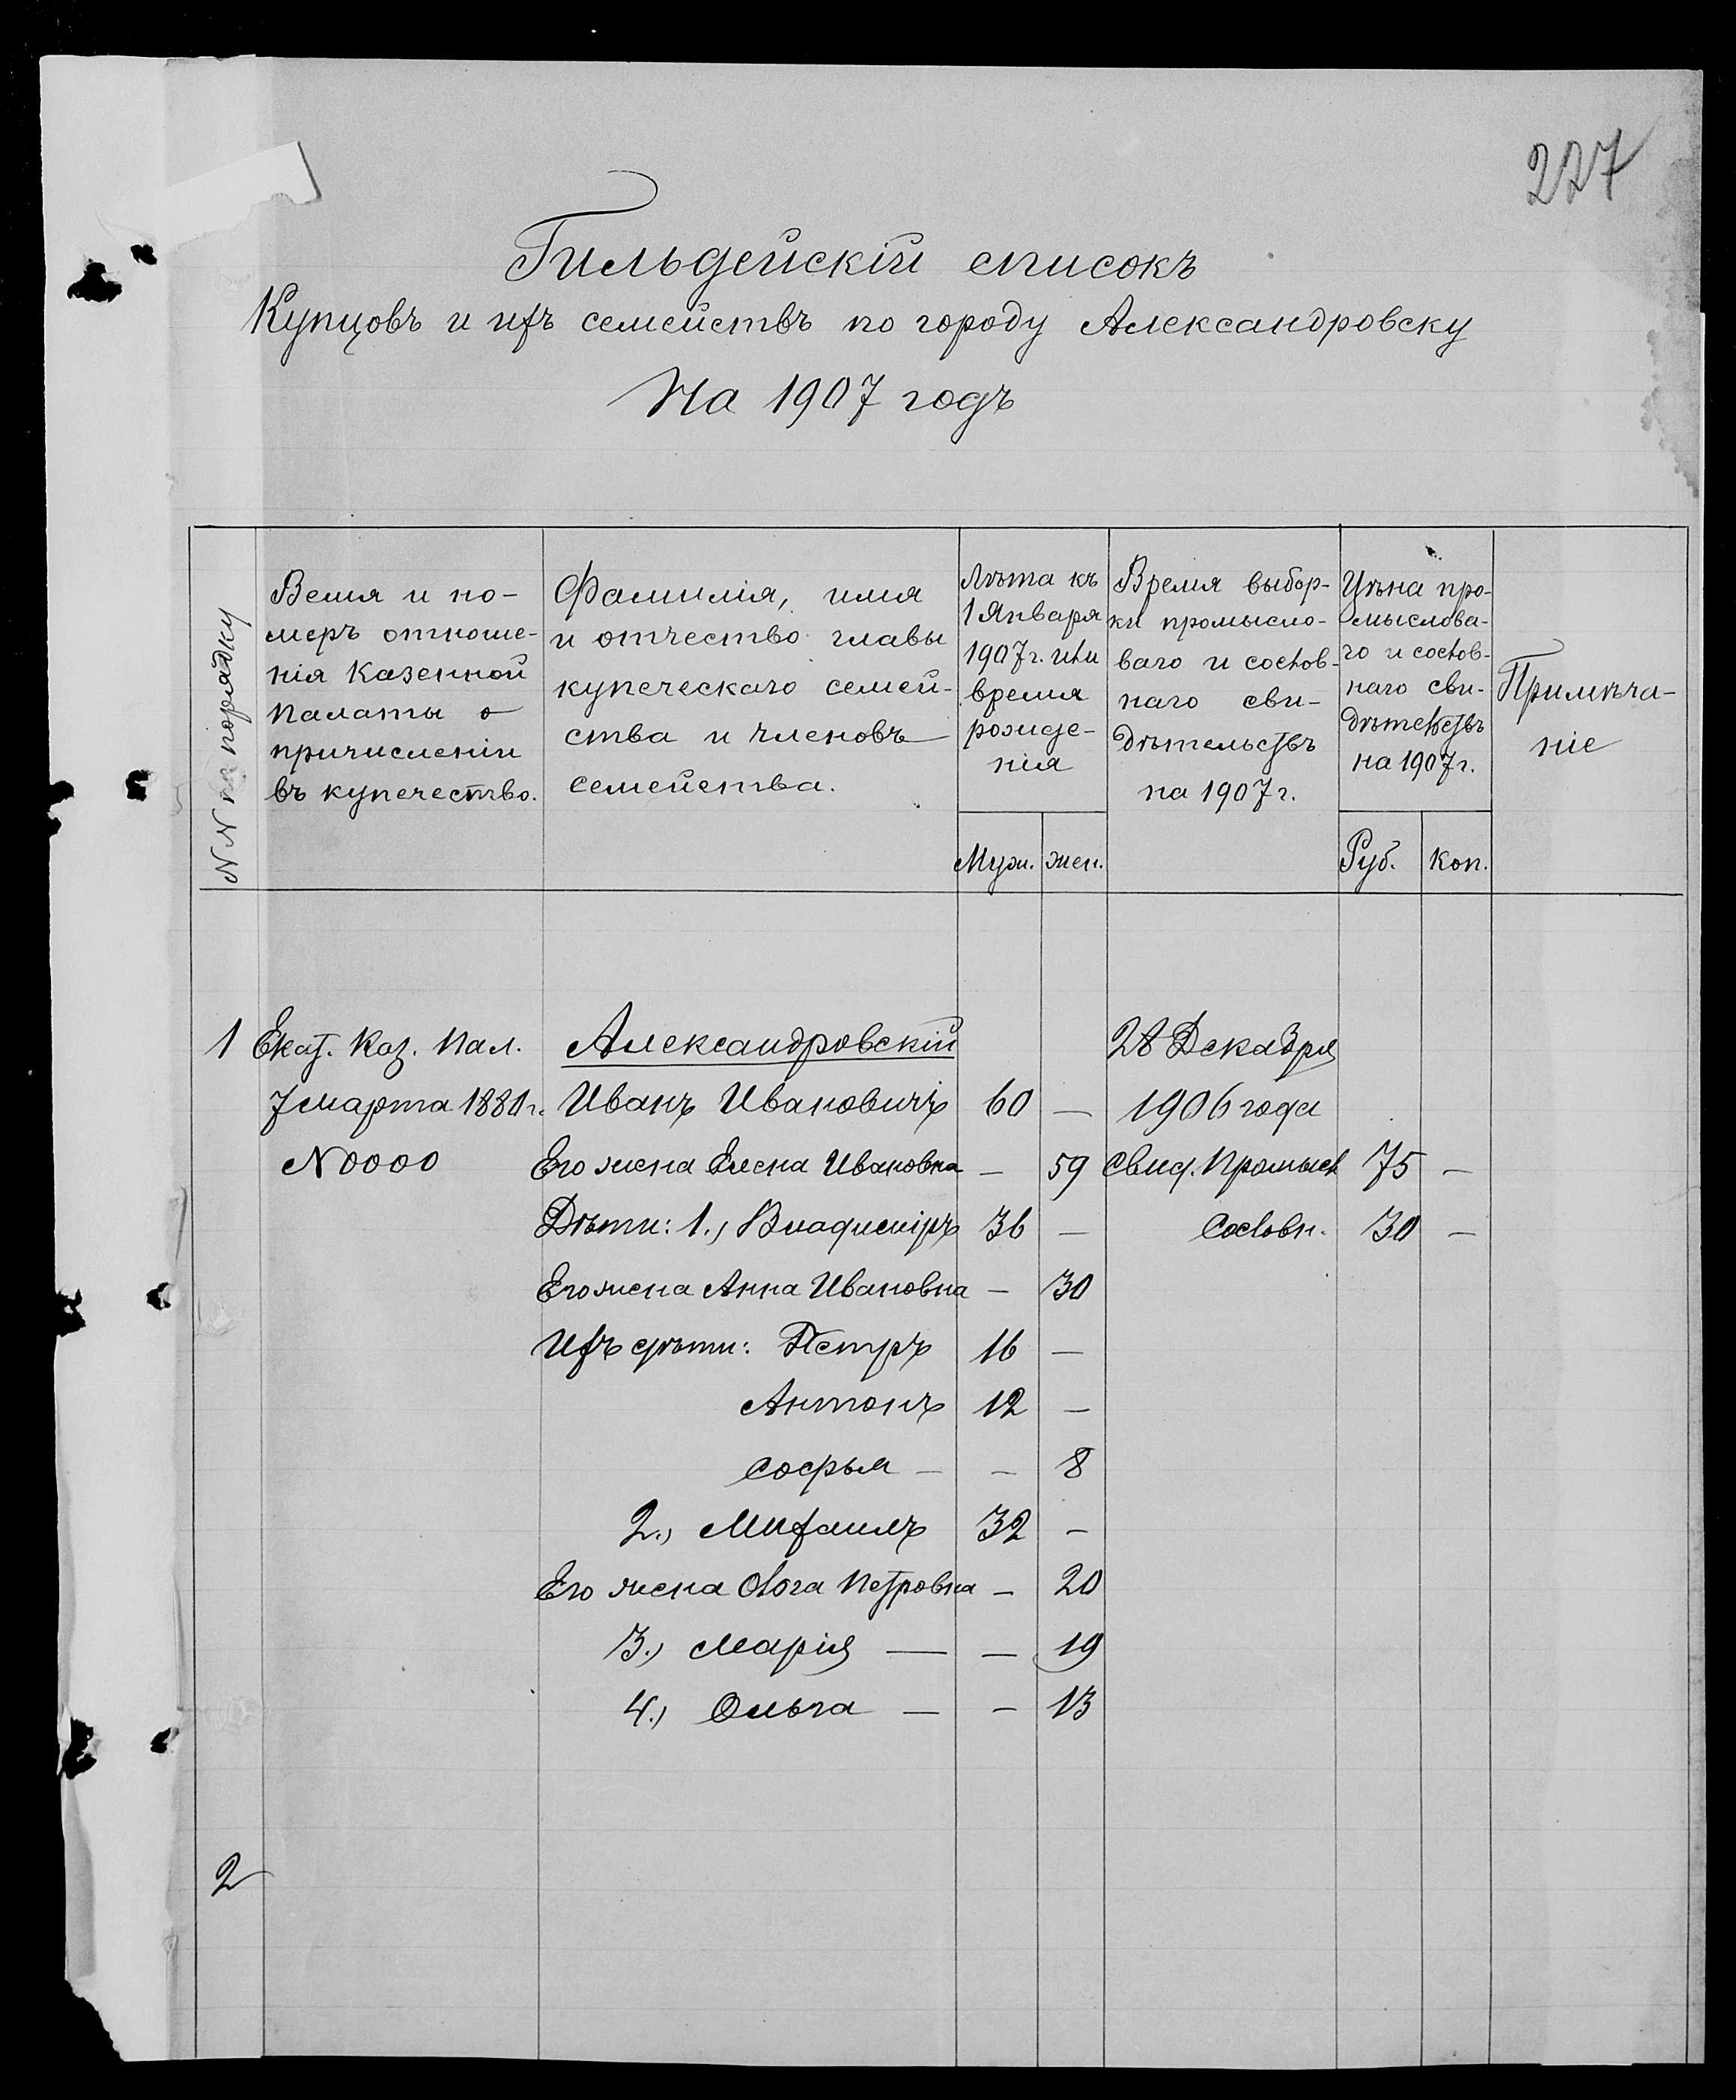 227
Гильдейскій списокъ
Купцовъ и ихъ семействъ по городу Александровску
На 1907 годъ
N N по порядку
Вемя и но-
меръ отноше-
нія Казенной
Палаты о
причисленіи
въ купечество.
Фамилія, имя
и отчество главы
купеческаго семей-
ства и членовъ
семейства.
Лѣта къ
1 Января
1907 г. или
время
рожде-
нія
Муж. жен.
Время выбор-
ки промысло-
ваго и сослов-
наго сви-
дѣтельствъ
на 1907 г.
Цѣна про-
мыслова-
го и сослов-
наго сви-
дѣтельствъ
на 1907 г.
Руб. Коп.
Примѣча-
ніе
1 Екат. Каз. Пал. Александровскій 28 Декабря
7 марта 1880 г. Иванъ Ивановичъ 60 — 1906 года
N 0000 Его жена Елена Ивановна — 59 Свид. Промысл 75 —
Дѣти: 1.) Владиміръ 36 — Сословн. 30 —
Его жена Анна Ивановна — 30
Ихъ дѣти: Петръ 16 —
Антонъ 12 —
Софья — — 8
2.) Михаилъ 32 —
Его жена Ольга Петровна — 20
3.) Марія — — 19
4.) Ольга — — 13
2